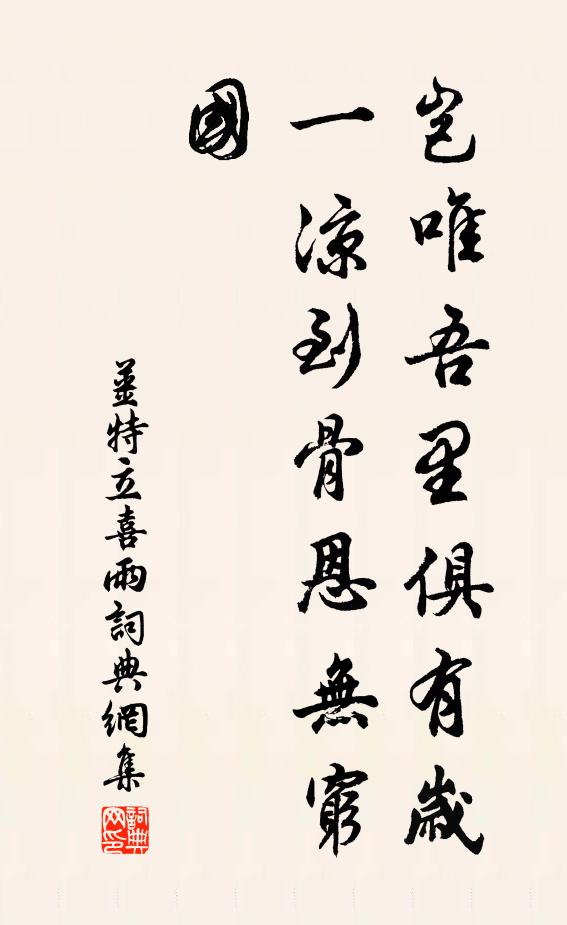 豈唯吾里俱有歲
一涼到骨恩無窮
國
姜特立喜雨詞典網集
詞典网印